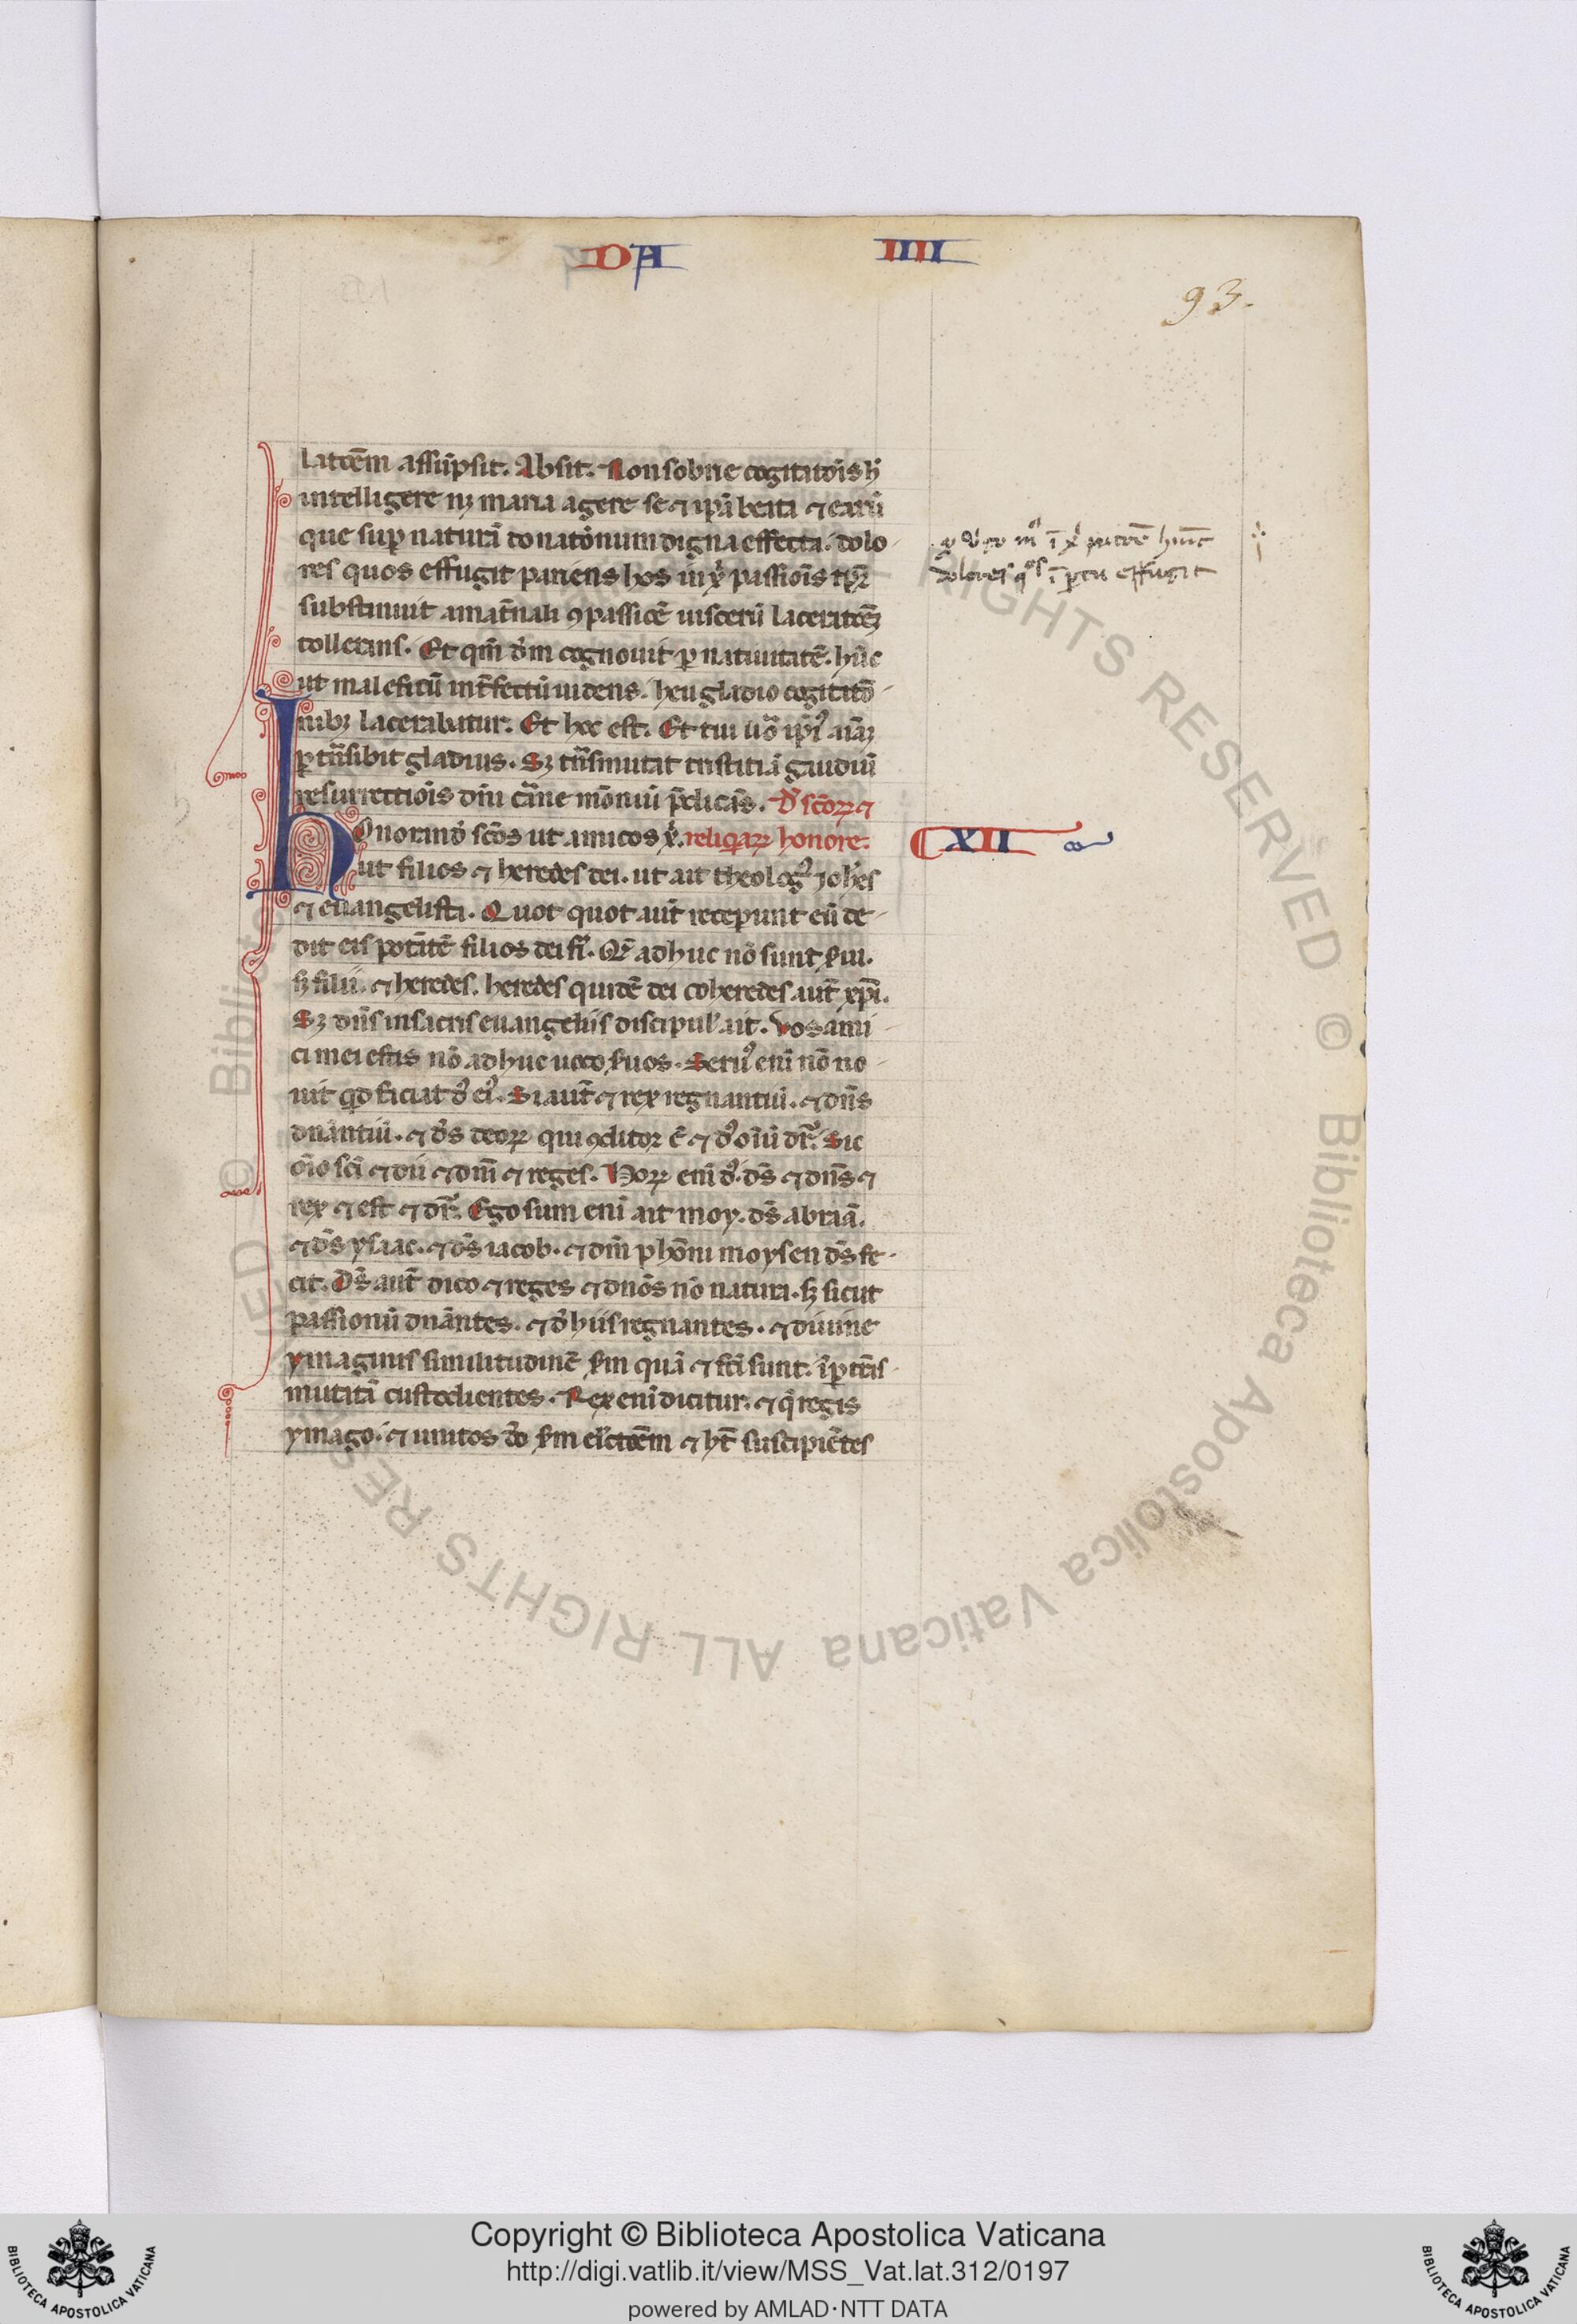 DA IIII
93.
latōēm assūpsit. Absit. Non sobrie cogitatōīs h̄
intelligere nȝ maria agere se ⁊ ip̄a beata ⁊ earū
que sup̱ naturā donatōnum digna effecta. dolo
res quos effugit pariens hos in xͥ passiōīs tp̄r̄
substinuit a mat̄nali ꝯpassiōē uiscerū laceratōēȝ
tollerans. Et qm̄ dm̄ cognouit ꝑ natiuitatē. hūc
ut maleficū int̄fectū uidens. heu gladio cogitatō
nibȝ lacerabatur. Et hoc est. Et tui uō ip̄iꝰ aīaȝ
ꝑtn̄sibit gladius. Sȝ tn̄smutat tristitiā gaudiū
resurrectiōis dn̄i carne mōriuū p̄dicās. D̄ sc̄oꝝ ⁊
Onorandi sc̄os ut amicos xͥ. reliq̄aꝝ honore.
XII
ut filios ⁊ heredes dei. ut ait theologꝰ Joh̄es
⁊ euangelista. Quot quot aut̄ recep̱unt eū de
dit eis potātē filios dei fī. Qr̄ adhuc nō sunt s̄ui.
s̄ filii. ⁊ heredes. heredes quidē dei coheredes aut̄ xp̄i.
Sȝ dn̄s in sacris euangeliis discipul̄ ait. Vos ami
ci mei estis nō adhuc uoco s̄uos. Seruꝰ enī nō no
uit qd̄ faciat dꝰ eiꝰ. Si aut̄ ⁊ rex regnantiū. ⁊ dn̄s
dn̄antiū. ⁊ dꝰs deoꝝ qui ꝯditor ē ⁊ dꝰ oīū dr̄. Sic
oīo sc̄i ⁊ dii ⁊ dn̄i ⁊ reges. Hoꝝ enī dꝰ. ds̄ ⁊ dn̄s ⁊
rex ⁊ est ⁊ dr̄. Ego sum enī ait moy. ds̄ abraā.
⁊ ds̄ ysaac. ⁊ ds̄ iacob. ⁊ dm̄ phōni moysen ds̄ fe
cit. Ds̄ aut̄ dico ⁊ reges ⁊ dn̄os nō natura. s̄ sicut
passionū dn̄antes. ⁊ d̄ hiis regnantes. ⁊ diuine
ymaginis similitudinē s̄m quā ⁊ fc̄i sunt. īꝑtn̄s
mutatā custodientes. Rex enī dicitur. ⁊ q̄ regis
ymago. ⁊ unitos dō s̄m electōēm ⁊ h̄t̄ suscipiētes
dolores qͦs ī ꝑtu effugit
Copyright © Biblioteca Apostolica Vaticana
http://digi.vatlib.it/view/MSS_Vat.lat.312/0197
powered by AMLAD·NTT DATA
BIBLIOTECA APOSTOLICA VATICANA
BIBLIOTECA APOSTOLICA VATICANA
© Biblioteca Apostolica Vaticana ALL RIGHTS RESERVED